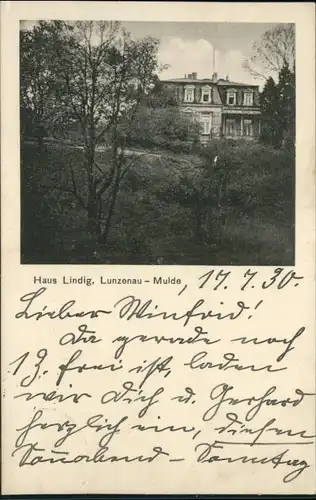 Haus Lindig, Lunzenau – Mulde, 17. 7. 30.
Lieber Winfrid!
Da gerade noch
13. frei ist, laden
wir Dich u. Gerhard
herzlich ein, diesen
Sonnabend – Sonntag